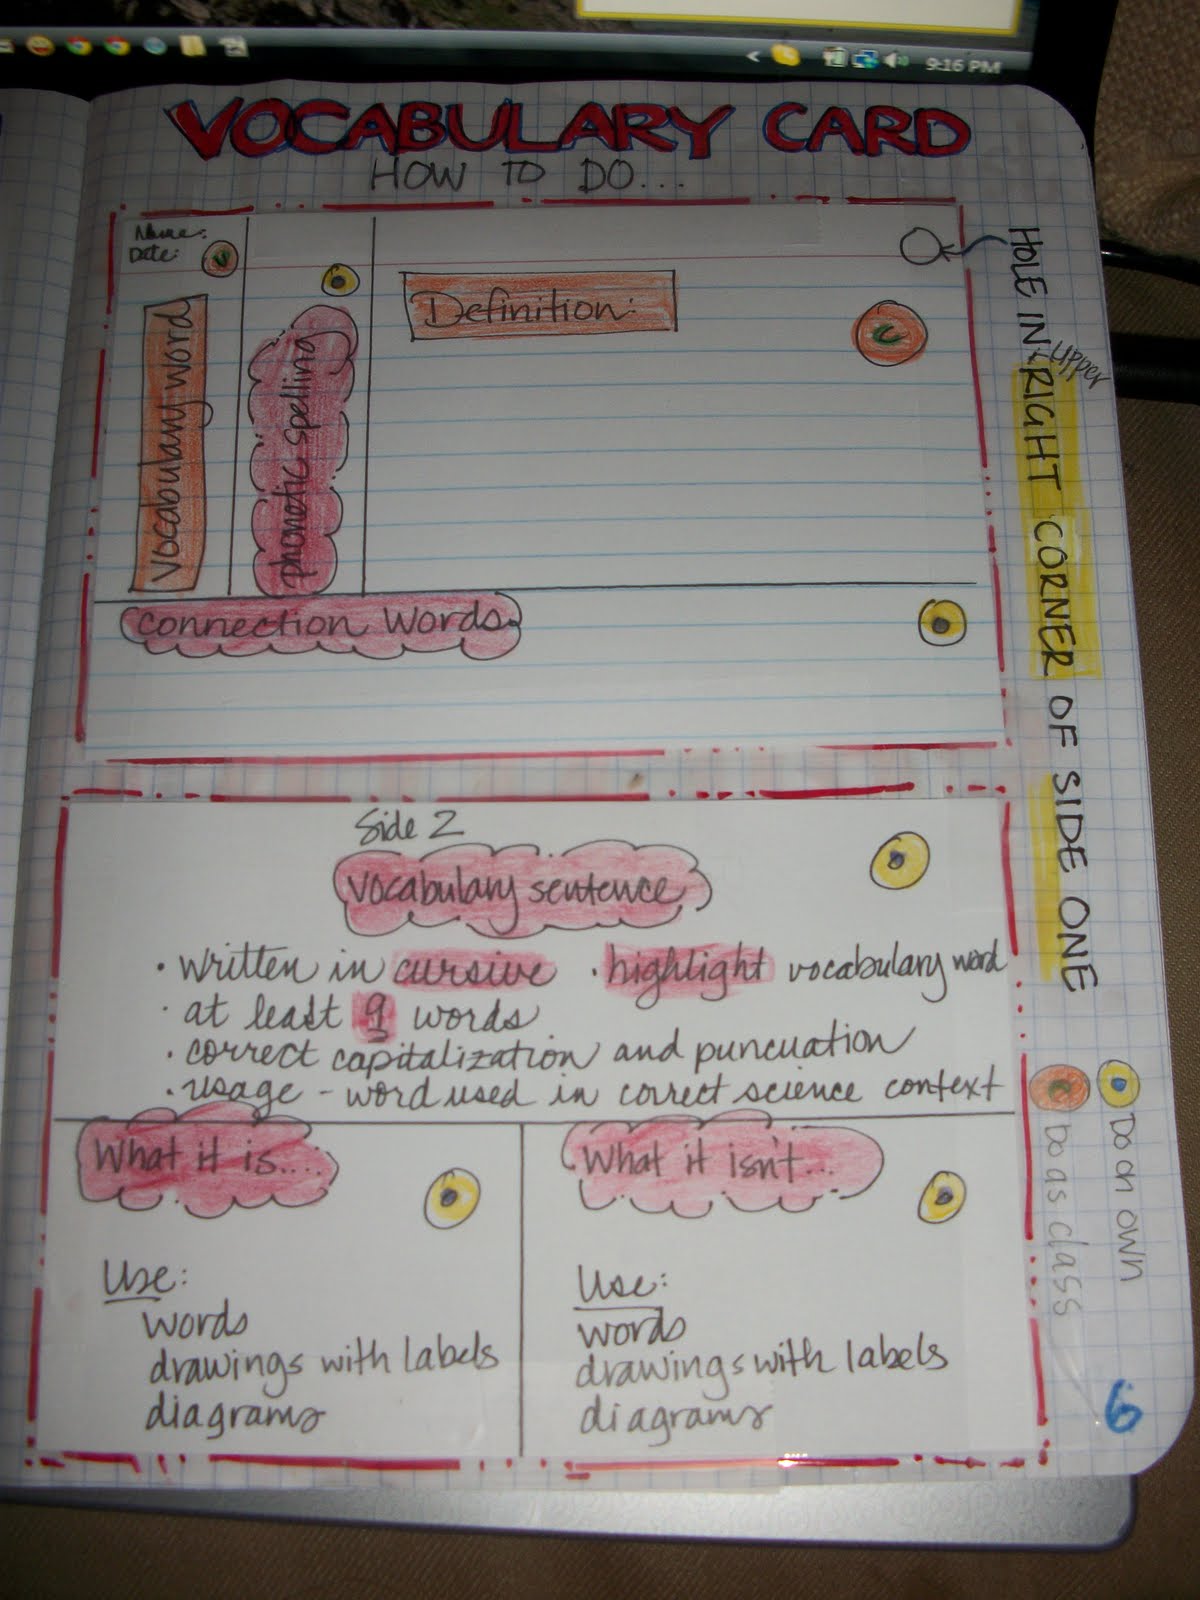 9:16 PM
VOCABULARY CARD
HOW TO DO...
Name:
Date:
Vocabulary word
phonetic spelling
Definition:
C
Connection Words
HOLE IN UPPER RIGHT CORNER OF SIDE ONE
Side 2
Vocabulary sentence
• written in cursive • highlight vocabulary word
• at least 9 words
• correct capitalization and puncuation
• usage - word used in correct science context
What it is....
Use:
words
drawings with labels
diagrams
What it isn't...
Use:
words
drawings with labels
diagrams
Do on own
C Do as class
6